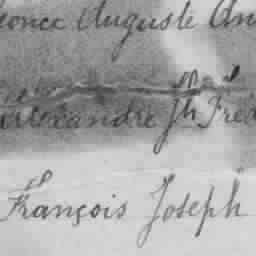 Léonce Auguste An
Alexandre Jh Fréd
François Joseph